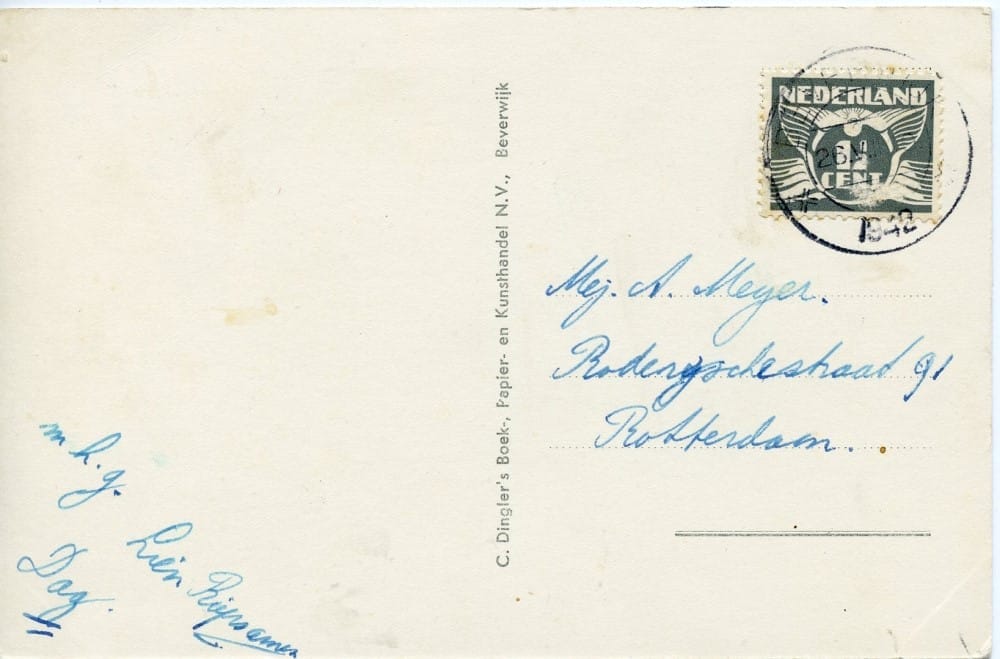 NEDERLAND
1½
CENT
26
1942
C. Dingler's Boek-, Papier- en Kunsthandel N.V., Beverwijk
Mej. A. Meyer.
91
Rotterdam.
m. h. g.
Lien
Dag.